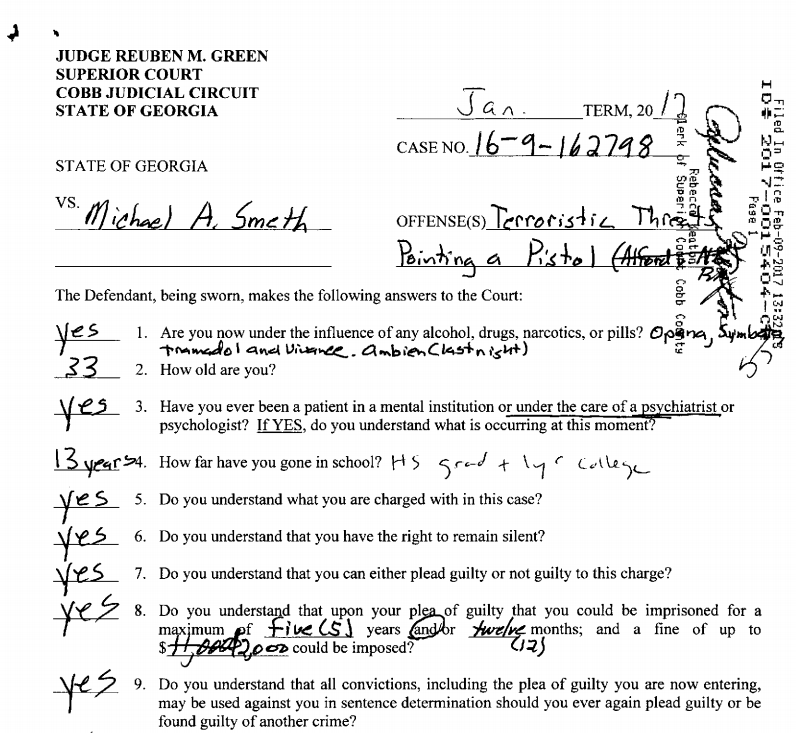 JUDGE REUBEN M. GREEN
SUPERIOR COURT
COBB JUDICIAL CIRCUIT
STATE OF GEORGIA
Jan. TERM, 2017
CASE NO. 16-9-162798
STATE OF GEORGIA
VS. Michael A. Smeth
OFFENSE(S) Terroristic Threats
Pointing a Pistol
ID# 2017-0015404-C
Filed In Office Feb-09-2017 13:32
Page 1
Rebecca Keaton
Clerk of Superior Court Cobb County
The Defendant, being sworn, makes the following answers to the Court:
Yes 1. Are you now under the influence of any alcohol, drugs, narcotics, or pills? Opana,
Tramadol and Vivance. Ambien (last night)
33 2. How old are you?
Yes 3. Have you ever been a patient in a mental institution or under the care of a psychiatrist or
psychologist? If YES, do you understand what is occurring at this moment?
13 years 4. How far have you gone in school? HS grad + 1yr college
yes 5. Do you understand what you are charged with in this case?
yes 6. Do you understand that you have the right to remain silent?
yes 7. Do you understand that you can either plead guilty or not guilty to this charge?
yes 8. Do you understand that upon your plea of guilty that you could be imprisoned for a
maximum of five (5) years and/or twelve months; and a fine of up to
(12)
$ 2,000 could be imposed?
yes 9. Do you understand that all convictions, including the plea of guilty you are now entering,
may be used against you in sentence determination should you ever again plead guilty or be
found guilty of another crime?